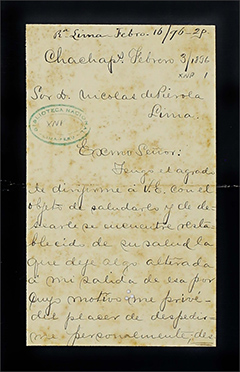 Rª Lima Febro. 16/96-28
Chachapˢ. Febrero 3/1896
Sor D. Nicolas de Piérola
Lima.
BIBLIOTECA NACIONAL
Exmo Señor:
Tengo el agrado
de dirijirme á UE. con el
objeto de saludarlo y de de-
searle se encuentre resta-
blecido de su salud la
que deje algo alterada
a mi salida de esa por
cuyo motivo me privé
del placer de despedir-
me personalmente, des